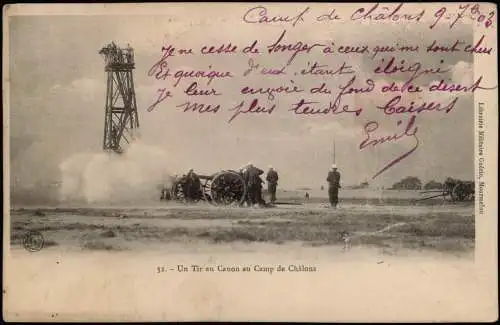 Camp de Châlons 9-7bre 03
Je ne cesse de songer à ceux qui me sont chers
Et quoique d'eux, étant éloigné
Je leur envoie du fond de ce désert
mes plus tendres Baisers
Emile
Librairie Militaire Guérin, Mourmelon
51. - Un Tir au Canon au Camp de Châlons